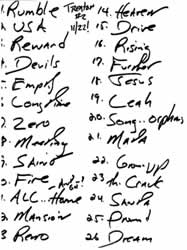 1. Rumble Trenton #2 11/22!
2. USA
3. Reward
4. Devils
5. Empty
6. Long Time
7. Zero
8. Meeting
9. Saint
0. Fire
1. ALL.. Home
2. Mansion
3. Reno
14. Heaven
15. Drive
16. Rising
17. Further
18. Jesus
19. Leah
20. Song.. orphans
21. Mary
22. Grow Up
23. Th. Crack
24. Santa
25. Promised
26. Dream